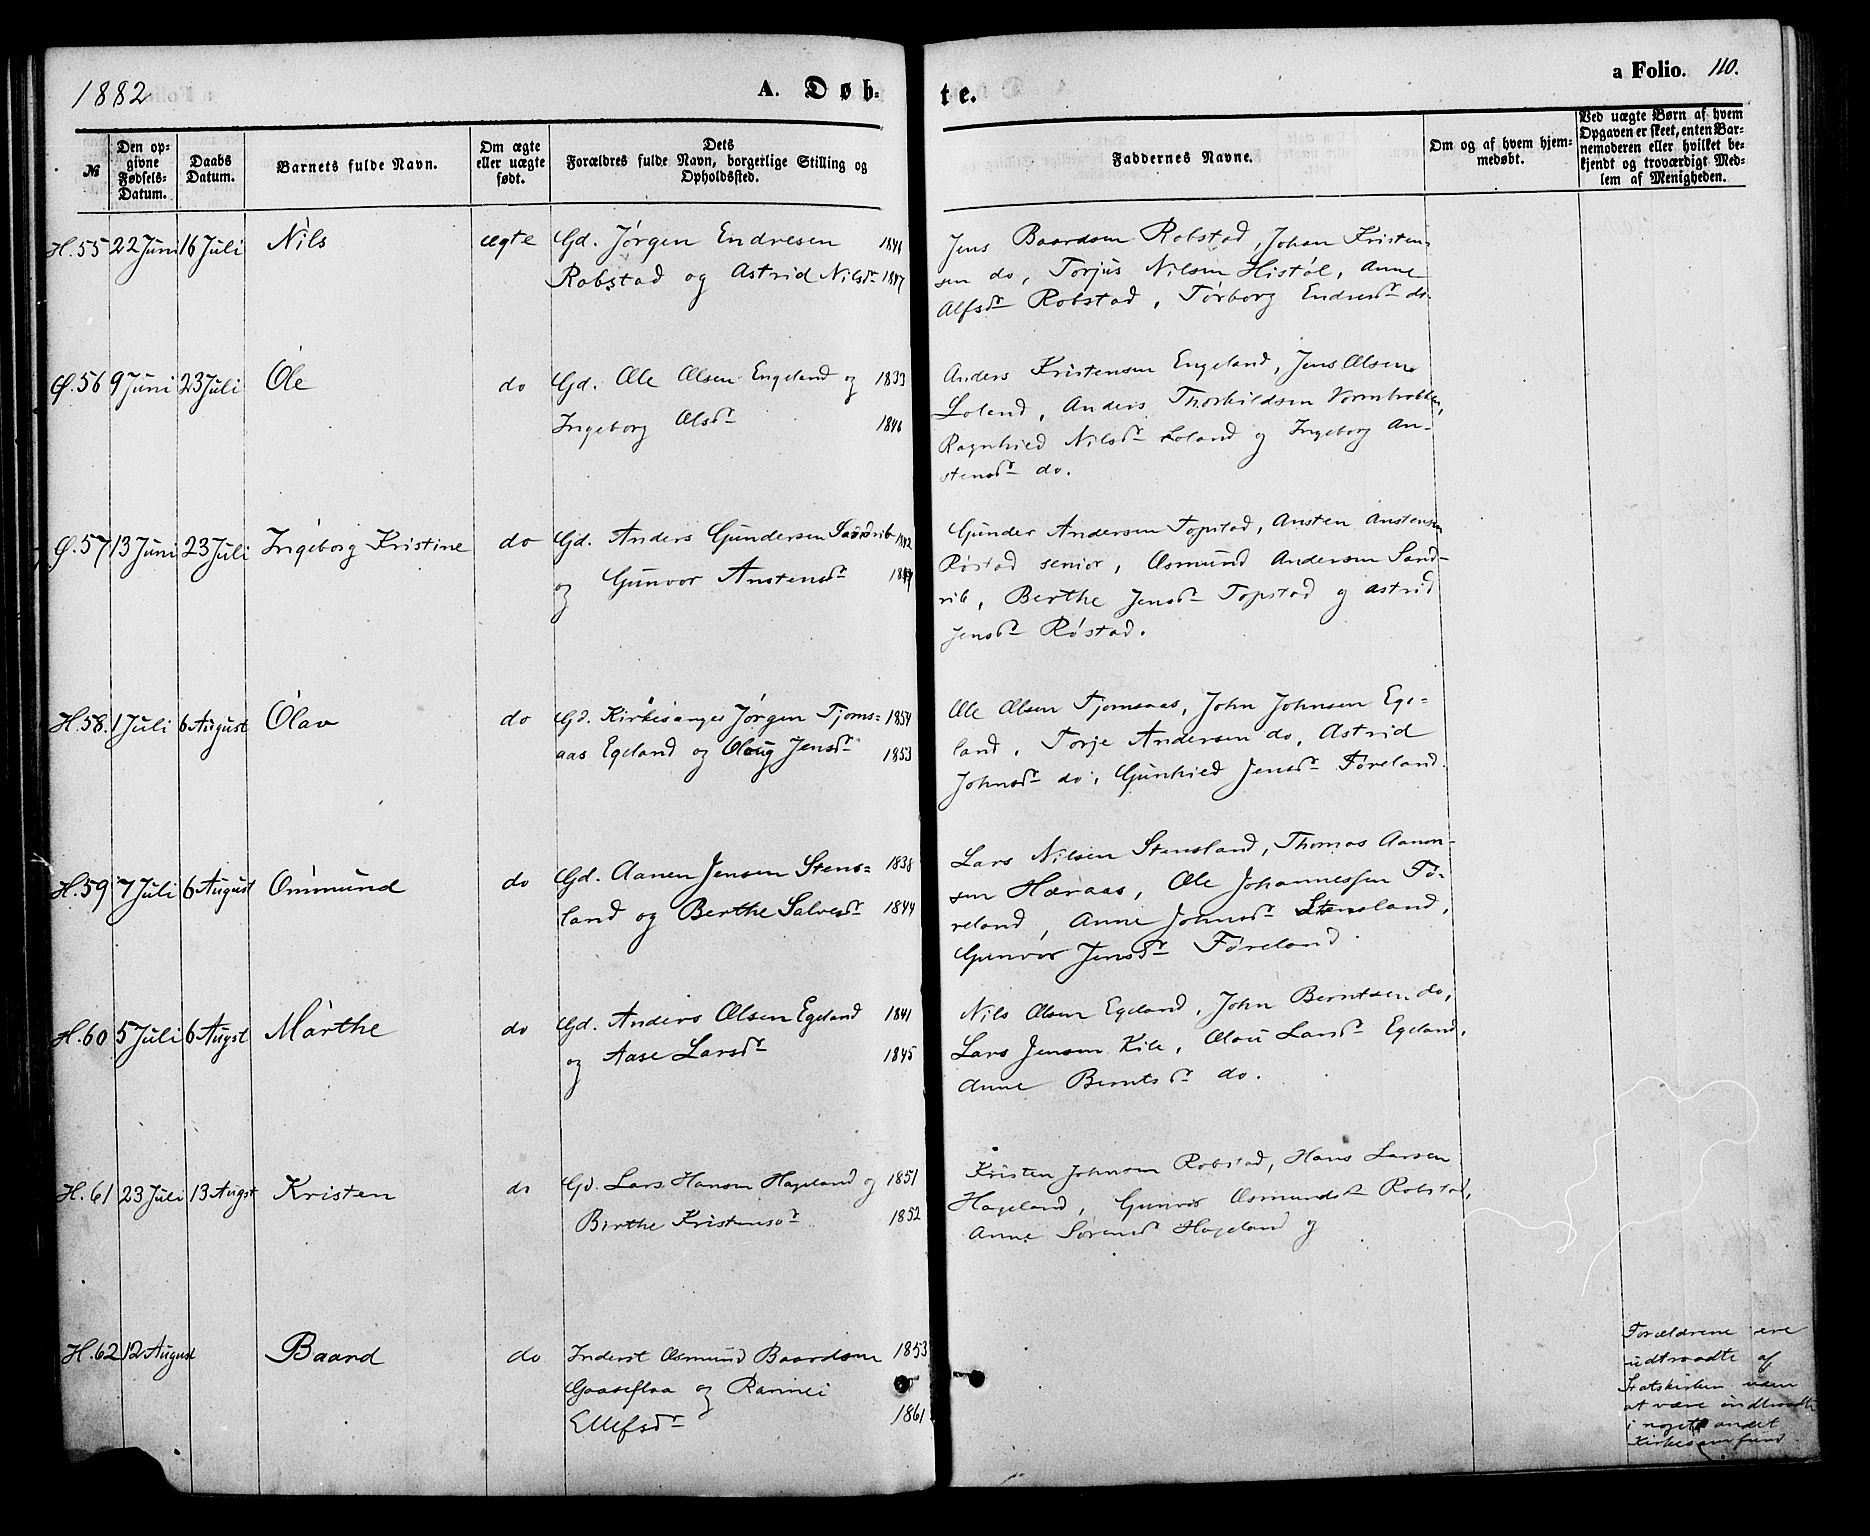 1882
A. Døb-
te.
a Folio. 110.
№
Den op-
givne
Fødsels-
Datum.
Daabs
Datum.
Barnets fulde Navn.
Om ægte
eller uægte
født.
Dets
Forældres fulde Navn, borgerlige Stilling og
Opholdssted.
Faddernes Navne.
Om og af hvem hjem-
medøbt.
Ved uægte Børn af hvem
Opgaven er skeet, enten Bar-
nemoderen eller hvilket be-
kjendt og troværdigt Med-
lem af Menigheden.
H. 55 22 Juni 16 Juli Nils ægte Gd. Jørgen Endresen
Robstad og Astrid Nilsdr 1847
Jens Baardsen Robstad, Johan Kristen-
sen do, Torjus Nilsen Histøl, Anne
Alfsdr Robstad, Torborg Endresdr do.
Ø. 56 9 Juni 23 Juli Ole do Gd. Ole Olsen Engeland og 1833
Ingeborg Olsdr 1846
Anders Kristensen Engeland, Jens Olsen
Loland, Anders Thorkildsen
Ragnhild Nilsdr Loland og Ingeborg An-
stensdr do.
Ø. 57 13 Juni 23 Juli Ingeborg Kristine do Gd. Anders Gundersen
og Gunvor Anstensdr
Gunder Andersen Topstad, Ansten Anstensen
Røstad senior, Osmund Andersen Sand-
rib, Berthe Jensdr Topstad og Astrid
Jensdr Røstad.
H. 58. 1 Juli 6 August Olav do Gd. Kirkesanger Jørgen Tjoms- 1854
aas Egeland og Olaug Jensdr 1853
Ole Olsen Tjomsaas, John Johnsen Ege-
land, Torje Andersen do, Astrid
Johnsdr do, Gunhild Jensdr Føreland.
H. 59 7 Juli 6 August Ommund do Gd. Aanen Jensen Stens- 1838
land og Berthe Salvesdr 1844
Lars Nilsen Stensland, Thomas Aanon-
sen Høraas, Ole Johannessen Fø-
reland, Anne Johnsdr Stensland,
Gunvor Jensdr Føreland.
H. 60 5 Juli 6 Augst Marthe do Gd. Anders Olsen Egeland 1841
og Aase Larsdr 1845
Nils Olsen Egeland, John Berntsen do,
Lars Jensen Kile, Olau Larsdr Egeland,
Anne Berntsdr do.
H. 61 23 Juli 13 Augst Kristen do Gd. Lars Hansen Hageland og 1851
Birthe Kristensdr 1852
Kristen Johnsen Robstad, Hans Larsen
Hageland, Gunvor Osmundsdr Robstad,
Anne Sørensdr Hageland og
H. 62 12 August Baard do Inderst Osmund Baardsen 1853
Gaaseflaa og Rannei
Ellefsdr 1861
Forældrene ere
udtraadte af
Statskirken uden
at være indtraadte
i noget andet
Kirkesamfund.